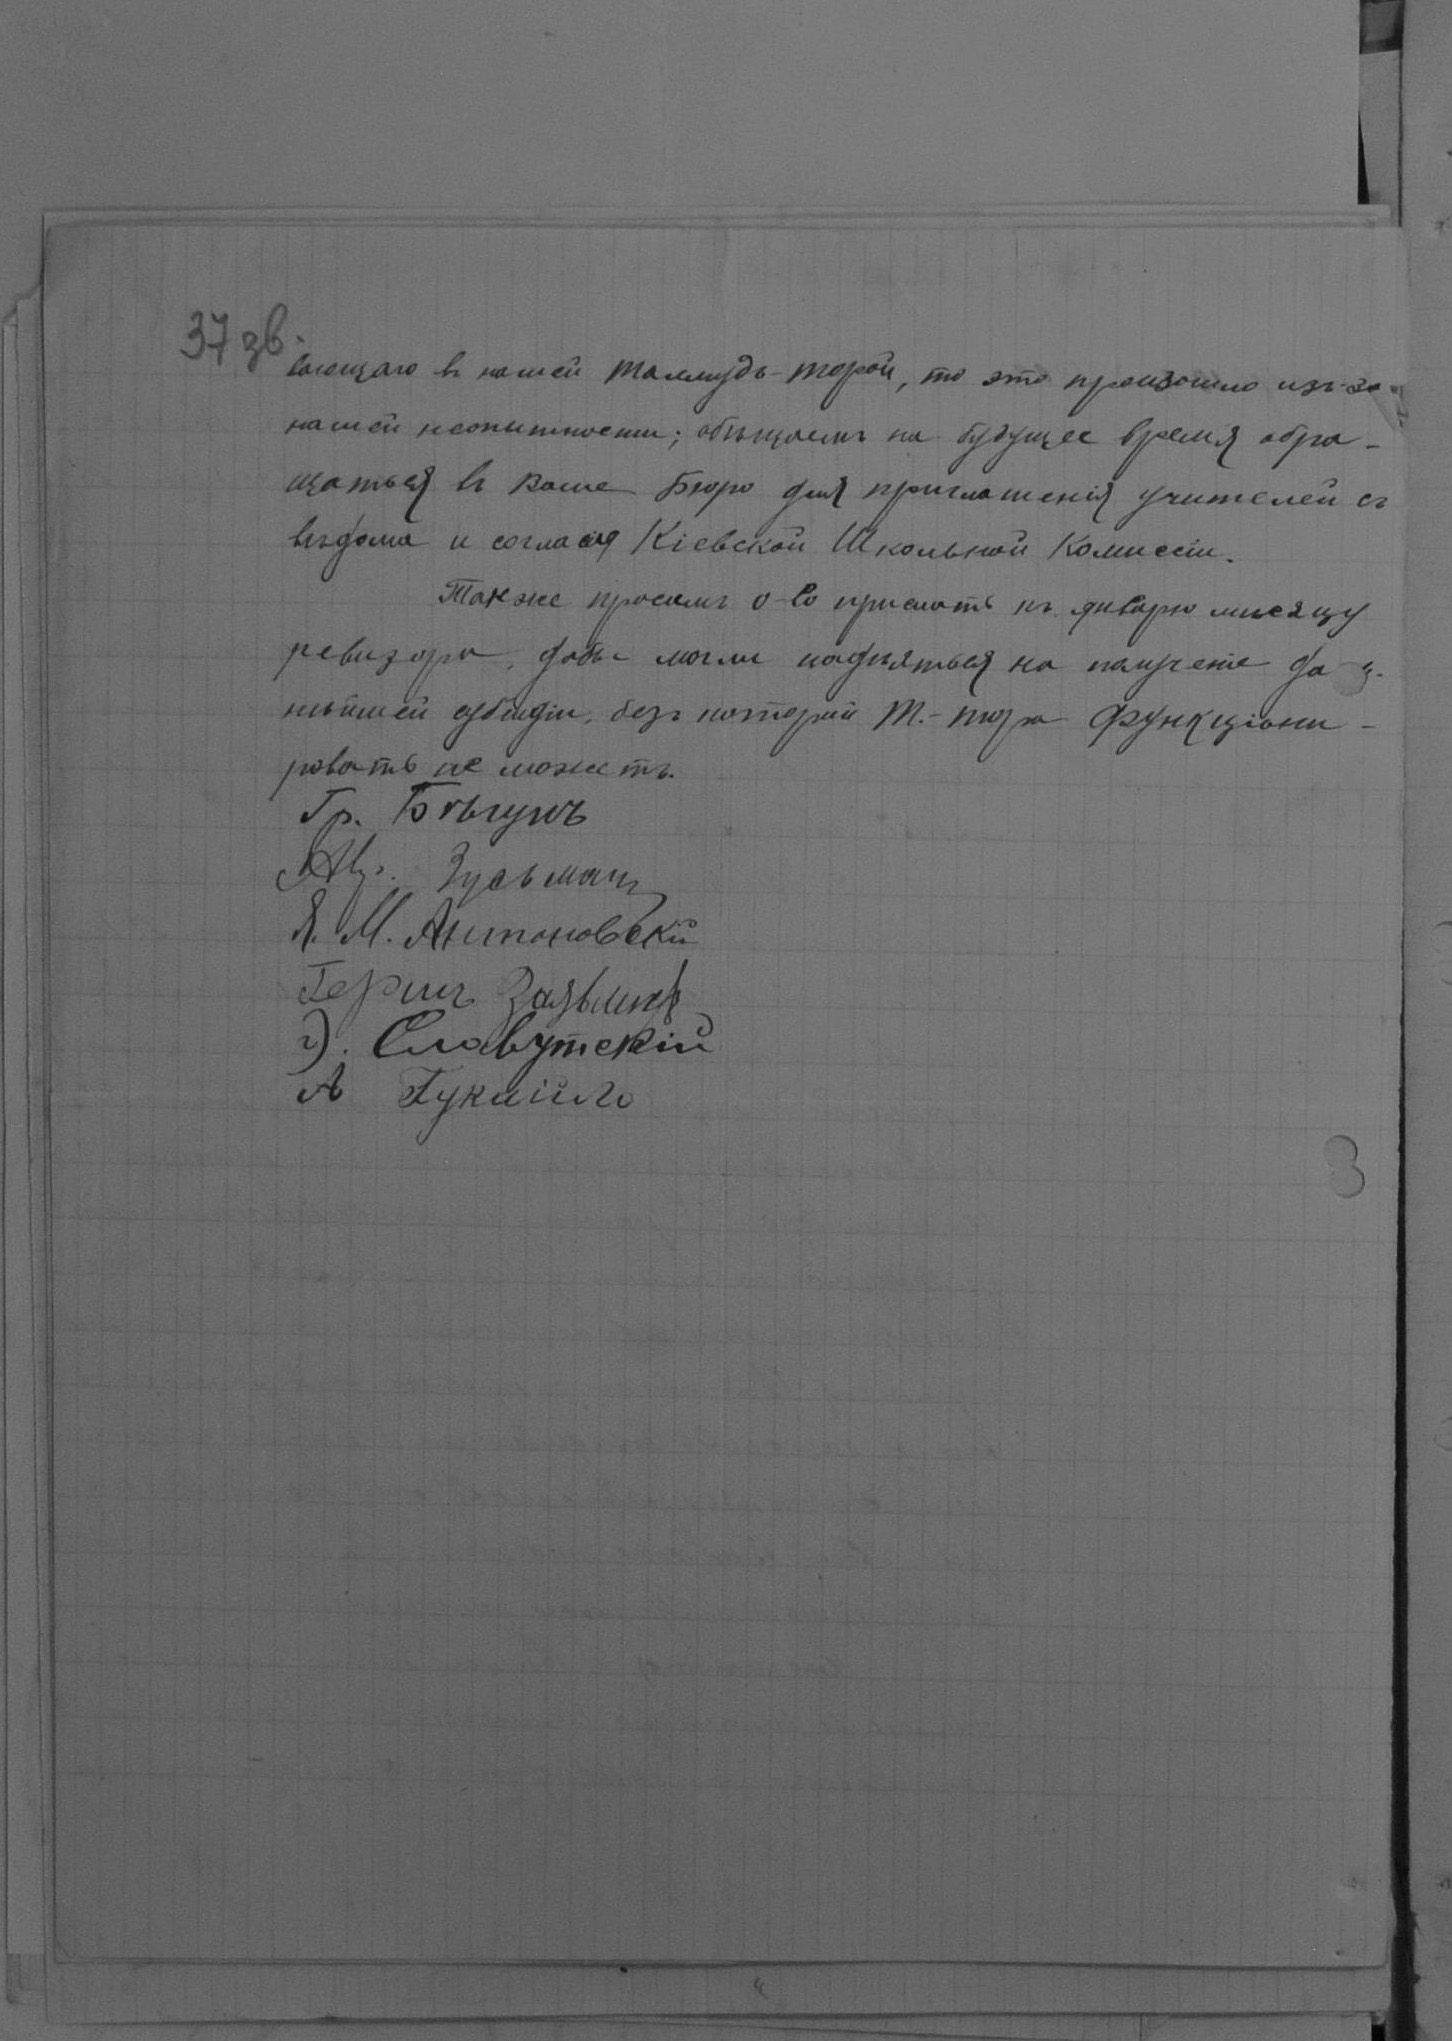 37 зв.
вающаго въ нашей талмудъ-торой, то это произошло изъ-за
нашей неопытности; обѣщаемъ на будущее время обра-
щаться въ Ваше Бюро для приглашенія учителей съ
вѣдома и согласія Кіевской Школьной Комиссіи.
Также просимъ о-во прислать къ январю мѣсяцу
ревизора, дабы могли надѣяться на полученіе да
нѣйшей субсидіи, безъ которой Т.-тора функціони-
ровать не можетъ.
Гр. Бѣгунъ
Зусьманъ
Я. М. Антоновскій
Гершъ
Славутскій
А